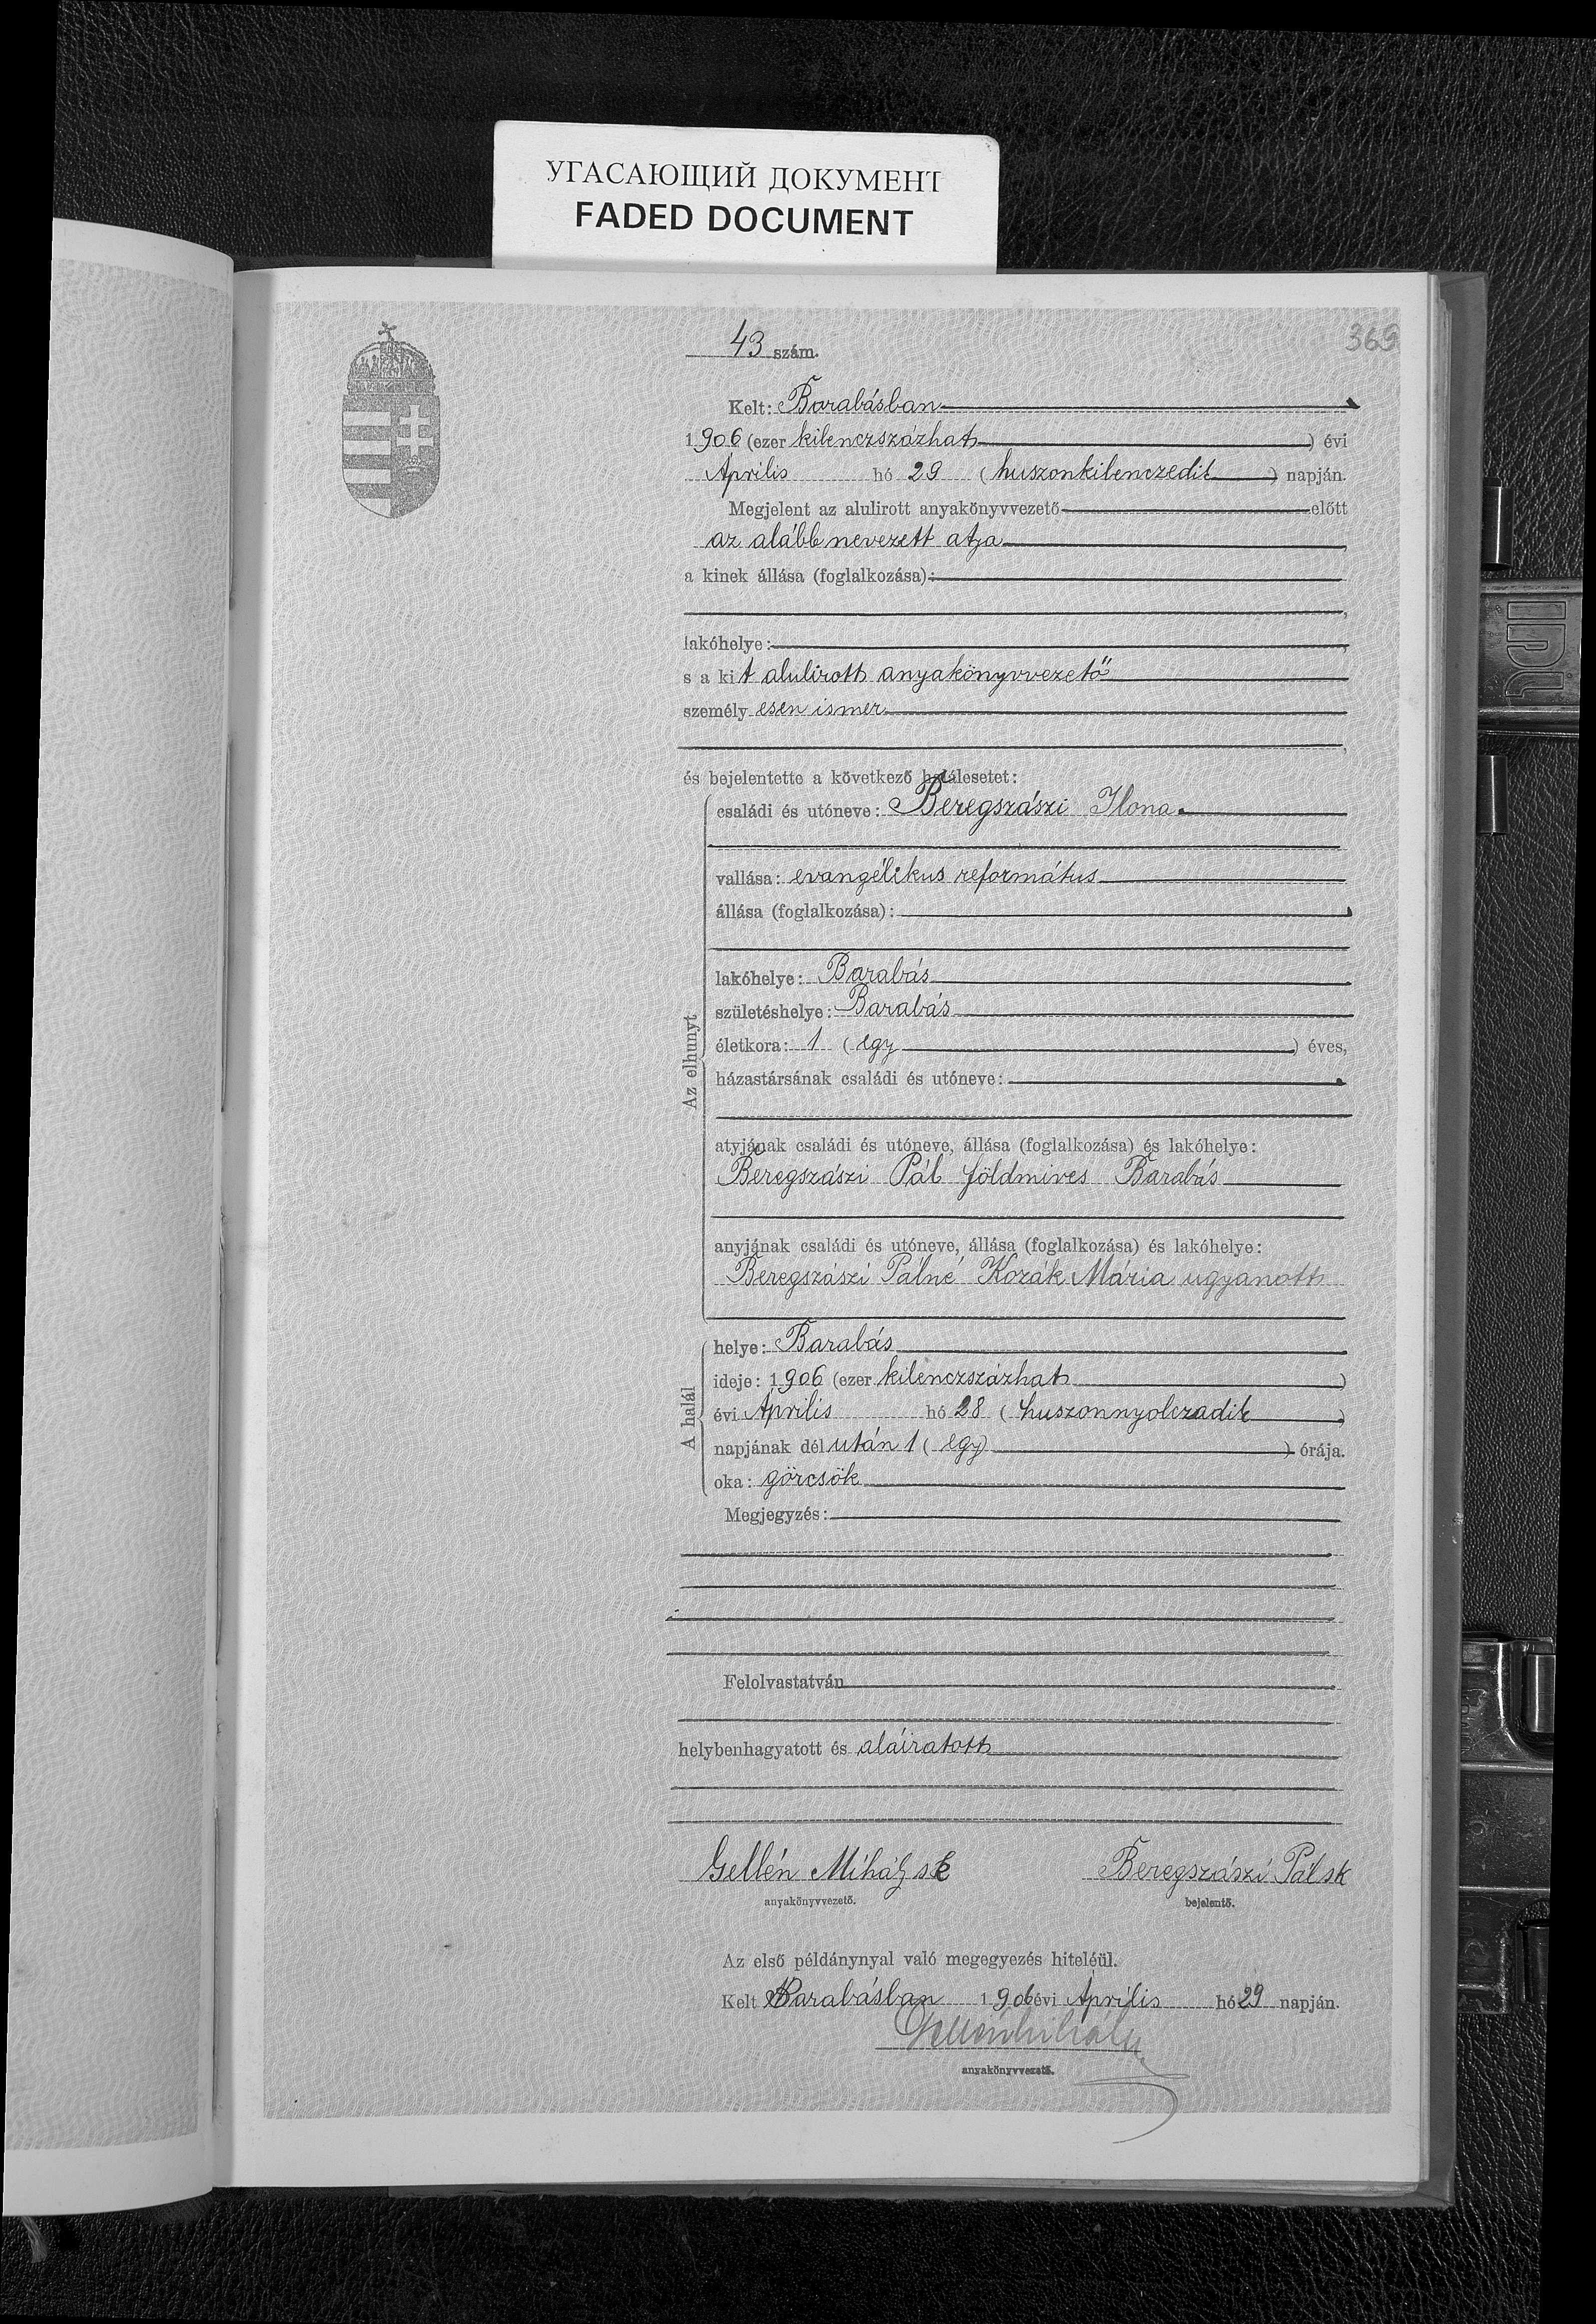 УГАСАЮЩИЙ ДОКУМЕНТ
FADED DOCUMENT
43 szám.
369
Kelt: Barabásban
1906 (ezer kilenczszázhat) évi
Április hó 29 (huszonkilenczedik) napján.
Megjelent az alulirott anyakönyvvezető előtt
az alább nevezett atja
a kinek állása (foglalkozása):
lakóhelye:
s a kit alulirott anyakönyvvezető
személyesen ismer
és bejelentette a következő halálesetet:
Az elhunyt
családi és utóneve: Beregszászi Ilona
vallása: evangélikus református
állása (foglalkozása):
lakóhelye: Barabás
születéshelye: Barabás
életkora: 1 (egy) éves,
házastársának családi és utóneve:
atyjának családi és utóneve, állása (foglalkozása) és lakóhelye:
Beregszászi Pál földmives Barabás
anyjának családi és utóneve, állása (foglalkozása) és lakóhelye:
Beregszászi Pálné Kozák Mária ugyanott
A halál
helye: Barabás
ideje: 1906 (ezer kilenczszázhat)
évi Április hó 28 (huszonnyolczadik)
napjának délután 1 (egy) órája.
oka: görcsök
Megjegyzés:
Felolvastatván
helybenhagyatott és aláiratott
Gellén Mihály sk Beregszászi Pál sk
anyakönyvvezető. bejelentő.
Az első példánynyal való megegyezés hiteléül.
Kelt Barabásban 1906 évi Április hó 29 napján.
Gellén Mihály
anyakönyvvezető.